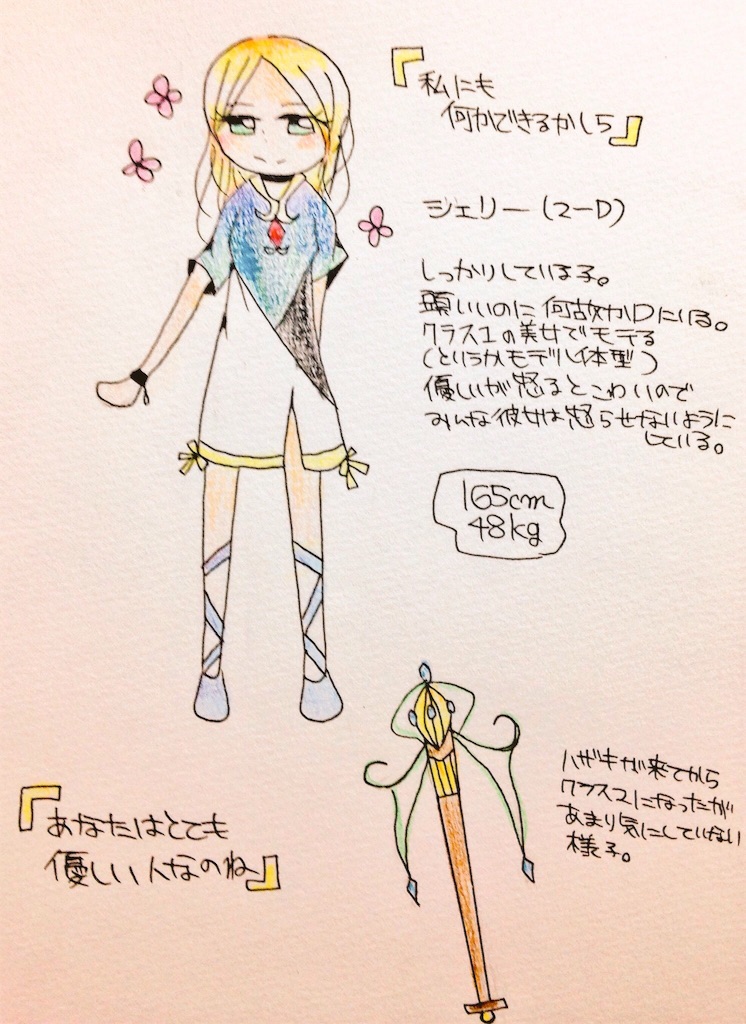 『私にも
何かできるかしら』
ジェリー(2-D)
しっかりしている子。
頭いいのに何故かDにいる。
クラス1の美女でモテる
(というかモデル体型)
優しいが怒るとこわいので
みんな彼女は怒らせないように
している。
165cm
48kg
ハザキが来てから
クラス2になったが
あまり気にしていない
様子。
『あなたはとても
優しい人なのね』